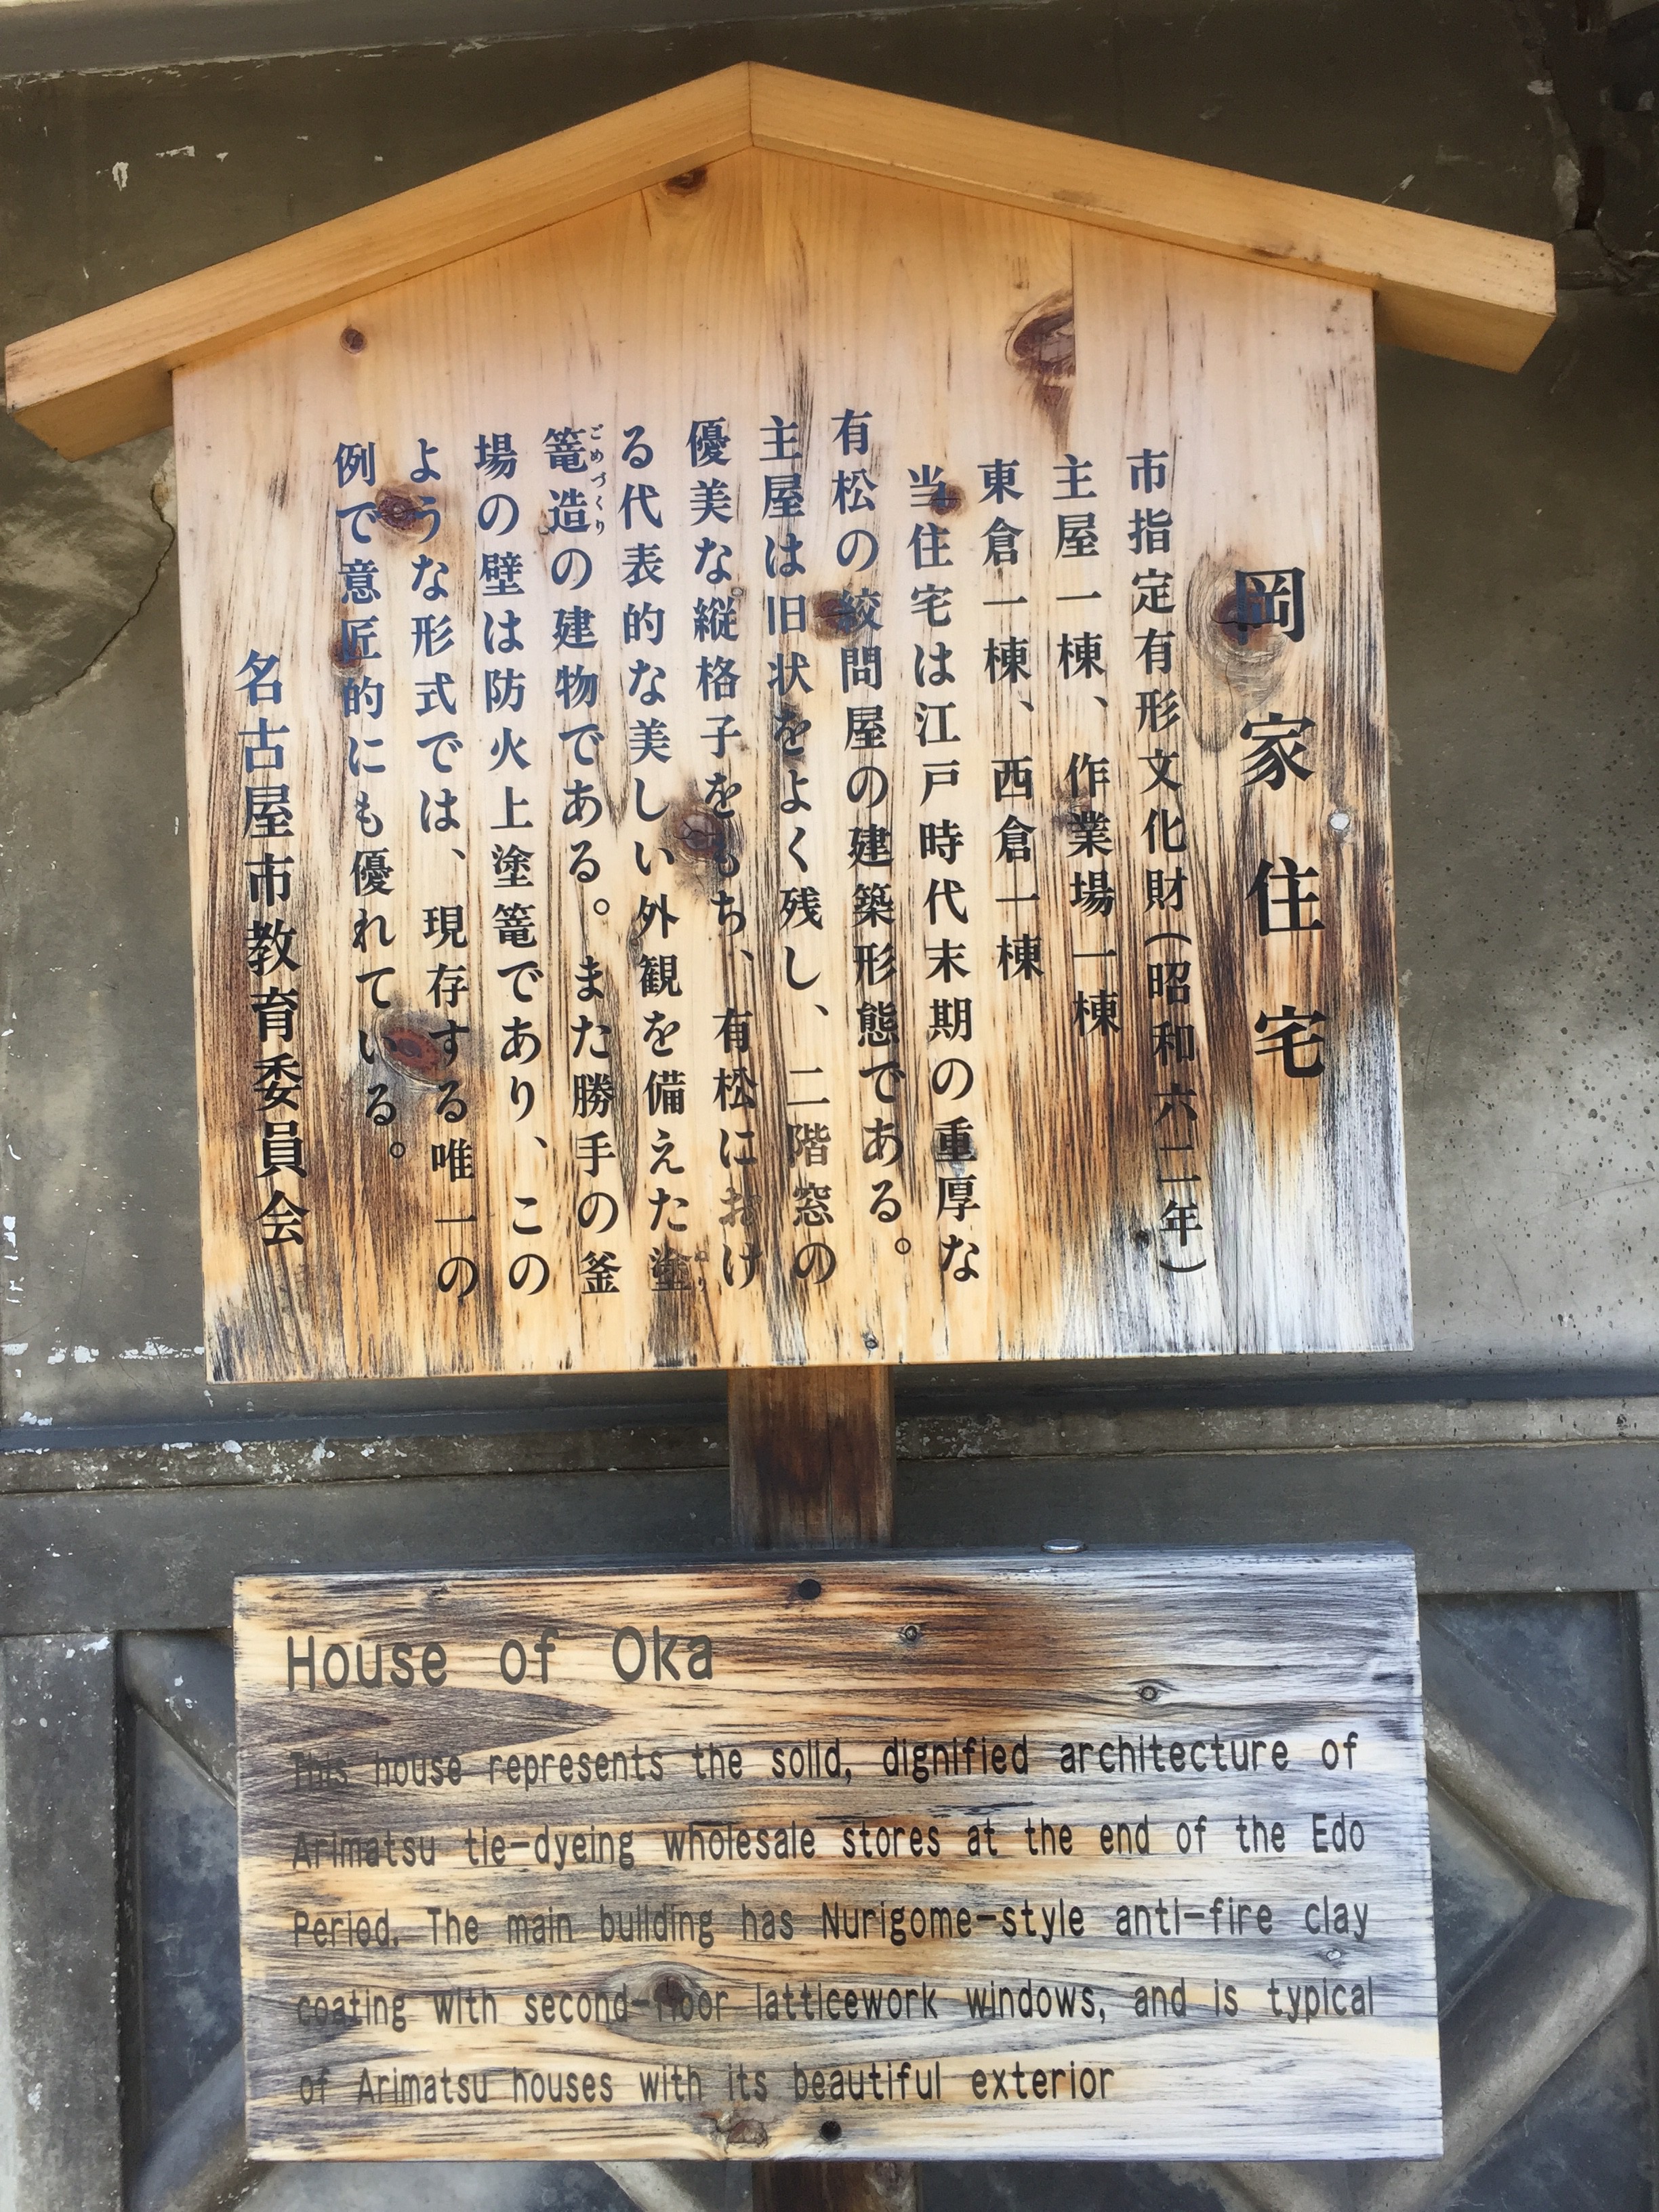 岡家住宅
市指定有形文化財(昭和六二年)
主屋一棟、作業場一棟
東倉一棟、西倉一棟
当住宅は江戸時代末期の重厚な
有松の絞問屋の建築形態である。
主屋は旧状をよく残し、二階窓の
優美な縦格子をもち、有松におけ
る代表的な美しい外観を備えた塗
篭造の建物である。また勝手の釜
ごめづくり
場の壁は防火上塗篭であり、この
ような形式では、現存する唯一の
例で意匠的にも優れている。
名古屋市教育委員会
House of Oka
This house represents the solid, dignified architecture of
Arimatsu tie-dyeing wholesale stores at the end of the Edo
Period. The main building has Nurigome-style anti-fire clay
coating with second-floor latticework windows, and is typical
of Arimatsu houses with its beautiful exterior